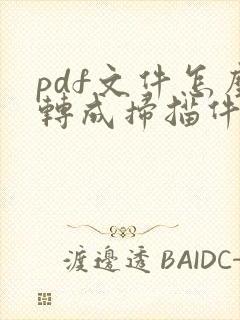 pdf文件怎麼
轉成掃描件
渡邊透 BAIDC-